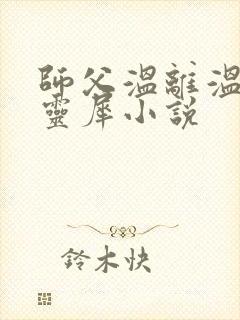 師父溫離溫
靈犀小說
鈴木快